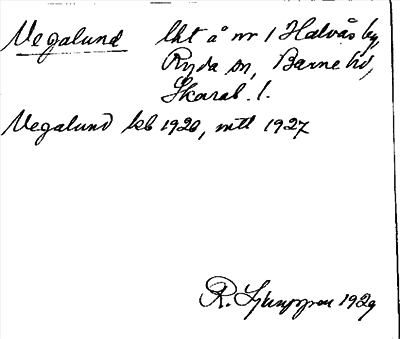 Vegalund lht å nr 1 Halvås by,
Ryda sn, Barne hd,
Skarab. l.
Vegalund kb 1920, mtl 1927
R. Ljunggren 1929